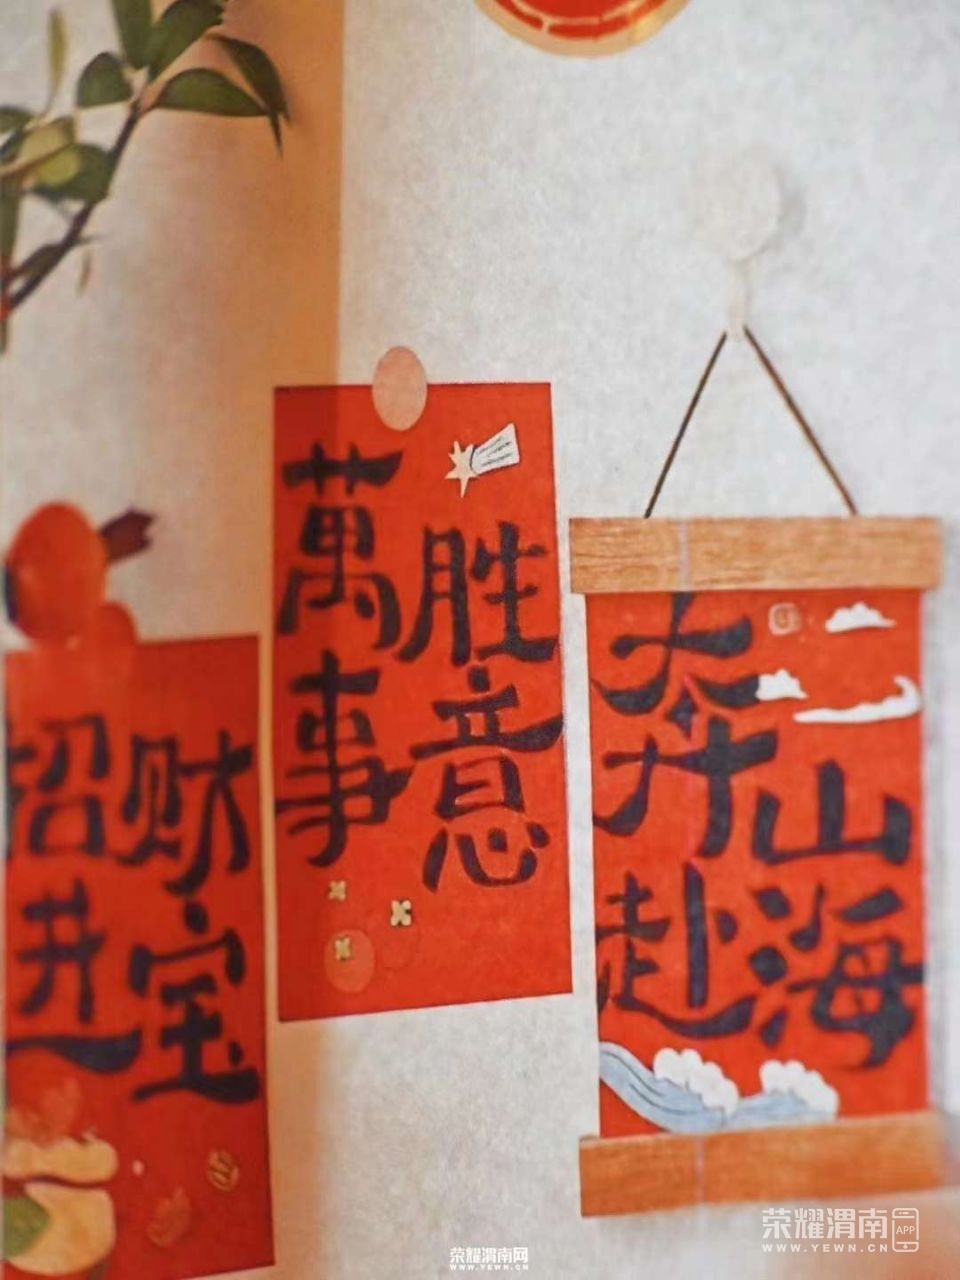 招财
进宝
萬胜
事意
奔山
赴海
荣耀渭南
APP
WWW.YEWN.CN
荣耀渭南网
WWW.YEWN.CN